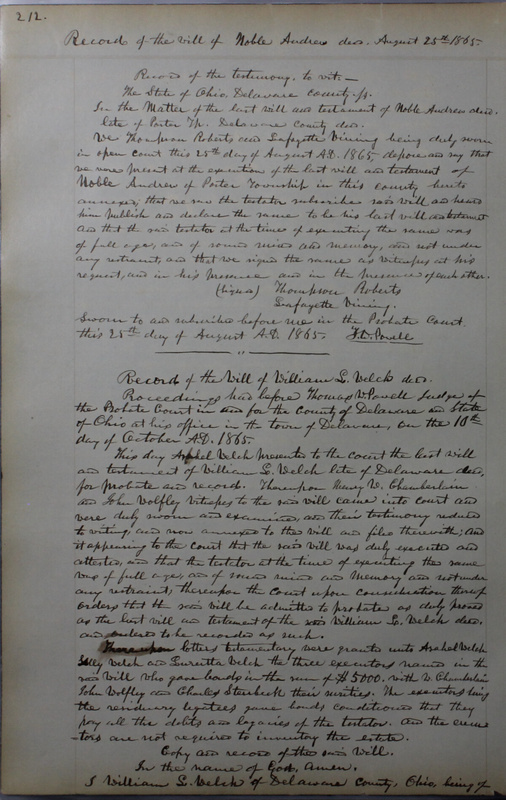 212.
Record of the will of Noble Andrew decd. August 25th 1865.
Record of the testimony, to wit:—
The State of Ohio, Delaware County ss.
In the Matter of the last will and testament of Noble Andrew decd.
late of Porter Tp. Delaware County decd.
We Thompson Roberts and Lafayette Vining being duly sworn
in open court this 25th day of August A.D. 1865, depose and say that
we were present at the execution of the last will and testament of
Noble Andrew of Porter Township in this county hereto
annexed, that we saw the testator subscribe said will and heard
him publish and declare the same to be his last will and testament
and that the said testator at the time of executing the same was
of full age, and of sound mind and memory, and not under
any restraint, and that we signed the same as witnesses at his
request, and in his presence and in the presence of each other.
(Signed) Thompson Roberts
Lafayette Vining.
Sworn to and subscribed before me in the Probate Court
this 25th day of August A.D. 1865. T.W. Powell
Record of the Will of William G. Welch decd.
Proceedings had before Thomas W. Powell Judge of
the Probate Court in and for the County of Delaware and State
of Ohio at his office in the town of Delaware, on the 10th
day of October A.D. 1865.
This day Asahel Welch presented to the court the last will
and testament of William G. Welch late of Delaware decd,
for probate and record. Thereupon W. Chamberlin
and John Wolfley witnesses to the said will came into court and
were duly sworn and examined, and their testimony reduced
to writing, and now annexed to the will and filed therewith; And
it appearing to the Court that the said will was duly executed and
attested, and that the testator at the time of executing the same
was of full age, and of sound mind and Memory and not under
any restraint, thereupon the Court upon consideration thereof
orders that the said will be admitted to probate as duly proved
as the last will and testament of the said William G. Welch decd.
and ordered to be recorded as such.
Thereupon letters testamentary were granted unto Asahel Welch
Welch and Luretta Welch the three executors named in the
said Will who gave bonds in the sum of $5000. with W. Chamberlin
John Wolfley and Charles their sureties. The executors being
the residuary legatees gave bonds conditioned that they
pay all the debts and legacies of the testator. and the execu-
-tors are not required to inventory the estate.
Copy and record of the said Will.
In the name of God, Amen.
I William G. Welch of Delaware County, Ohio, being of